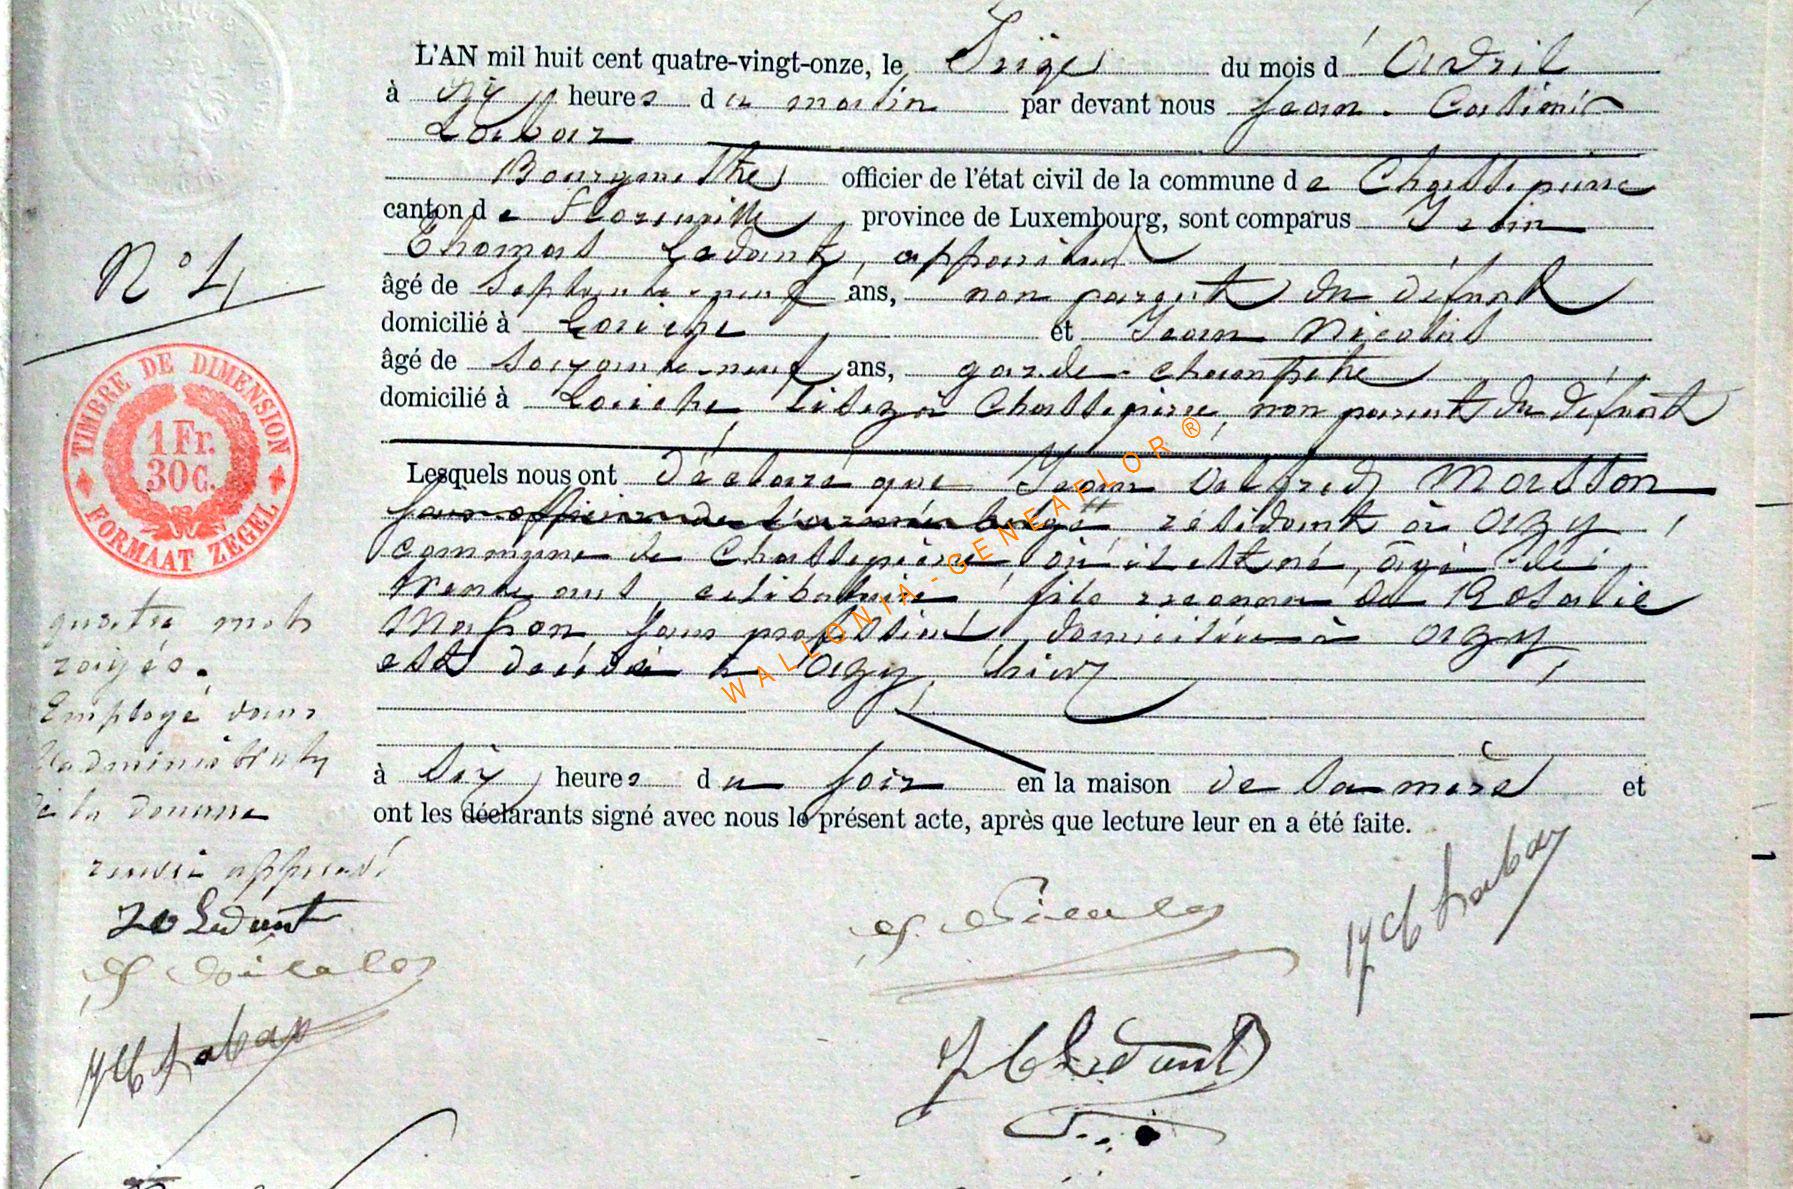 L'AN mil huit cent quatre-vingt-onze, le seize du mois d'Avril
à six heures du matin par devant nous Jean-Casimir
Labar
Bourgmestre officier de l'état civil de la commune de Chassepierre
canton de Florenville province de Luxembourg, sont comparus Jean
Thomas Ledant, appariteur
âgé de septante-neuf ans, non parent du défunt
domicilié à Laiche et Jean Nicolas
âgé de soixante-neuf ans, garde-champêtre
domicilié à Laiche, lisez à Chassepierre, non parent du défunt
Lesquels nous ont déclaré que Jean Alfred Masson
résidant à Azy,
commune de Chassepierre, où il est né, âgé de
trente ans, célibataire, fils reconnu de Rosalie
Masson, sans profession, domiciliée à Azy,
est décédé à Azy, hier
à six heures du soir en la maison de sa mère et
ont les déclarants signé avec nous le présent acte, après que lecture leur en a été faite.
N° 4
TIMBRE DE DIMENSION
1 Fr.
30 C.
FORMAAT ZEGEL
quatre mots
rayés.
Employé dans
l'administration
de la douane
renvoi approuvé
Ledant
Nicolas
Labar
Nicolas
Labar
Ledant
WALLONIA-GENEAFLOR®